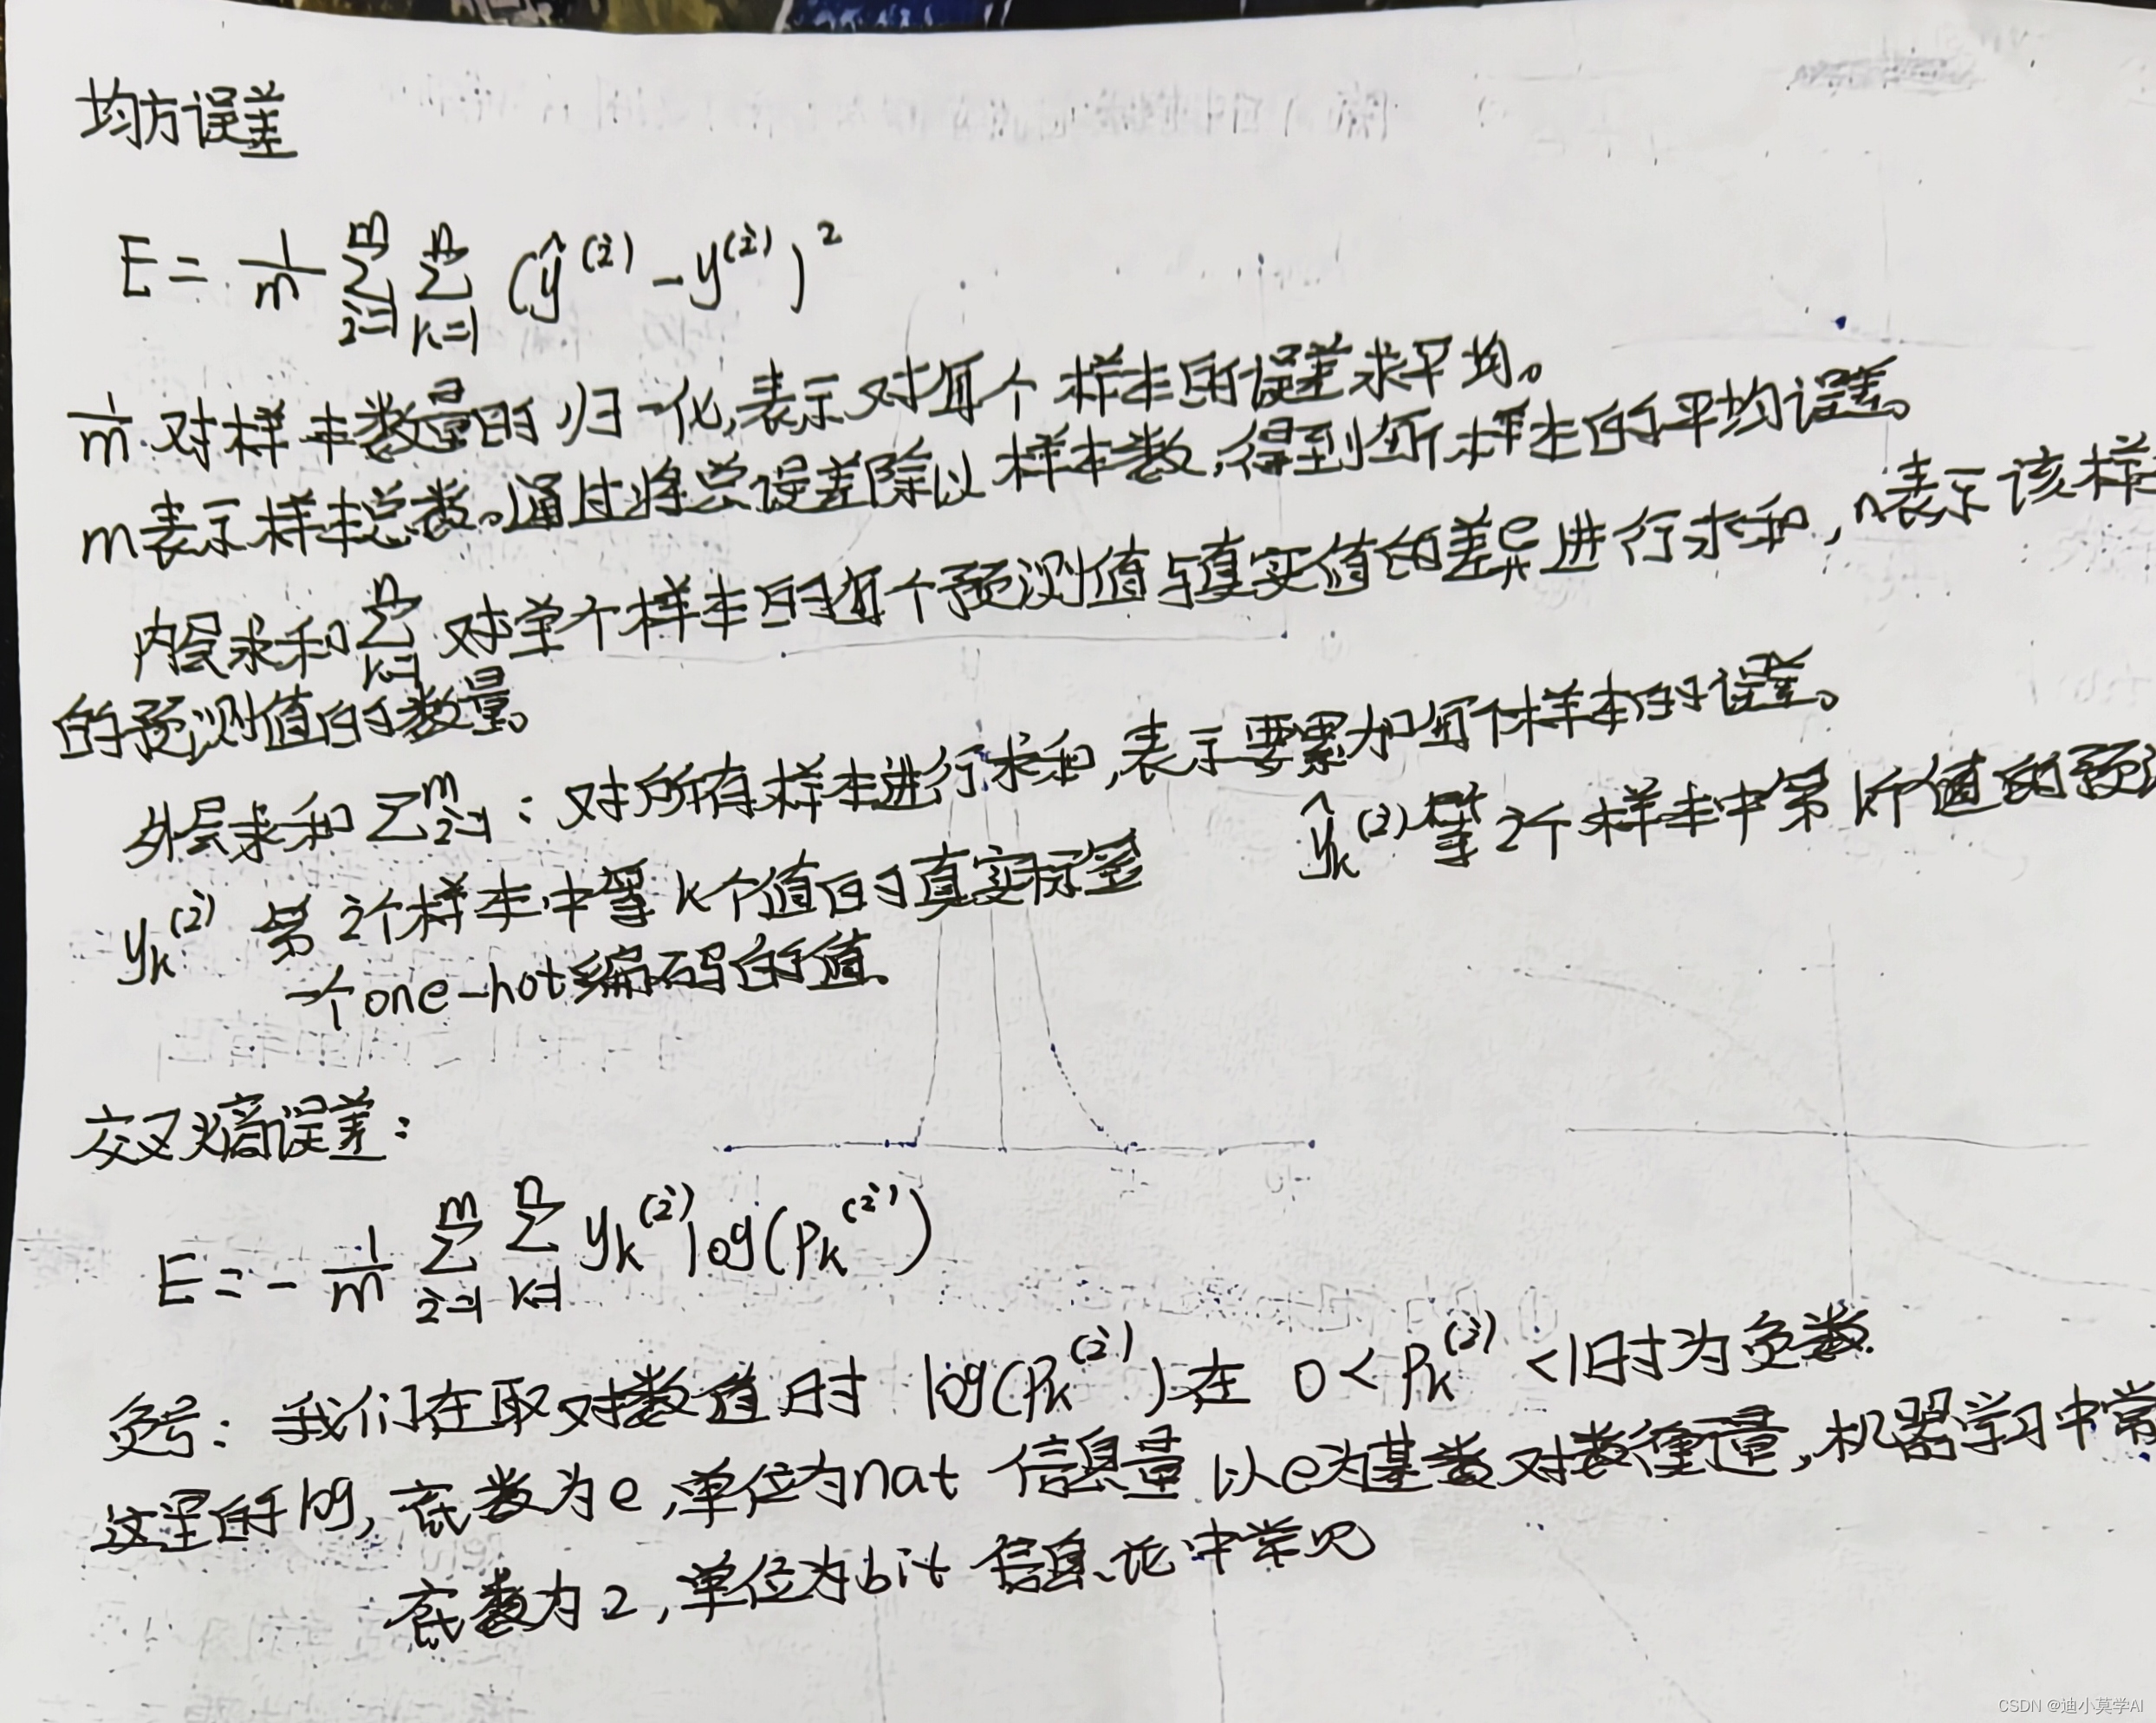 均方误差
E = 1/m ∑_{i=1}^{m} ∑_{k=1}^{n} (ŷ^{(i)} - y^{(i)})^2
1/m 对样本数量的归一化,表示对每个样本的误差求平均。
m表示样本总数。通过将总误差除以样本数,得到每个样本的平均误差。
内层求和∑_{k=1}^{n} 对单个样本的每个预测值与真实值的差异进行求和,n表示该样
的预测值的数量。
外层求和∑_{i=1}^{m}:对所有样本进行求和,表示要累加每个样本的误差。
y_k^{(i)} 第i个样本中第k个值的真实标签 ŷ_k^{(i)} 第i个样本中第k个值的预
一个one-hot编码的值。
交叉熵误差:
E = - 1/m ∑_{i=1}^{m} ∑_{k=1}^{n} y_k^{(i)} log(p_k^{(i)})
负号:我们在取对数值时 log(p_k^{(i)})在 0 < p_k^{(i)} <1时为负数.
这里的log,底数为e,单位为nat 信息量以e为基数对数衡量,机器学习中常
底数为2,单位为bit 信息论中常见
CSDN @迪小莫学AI